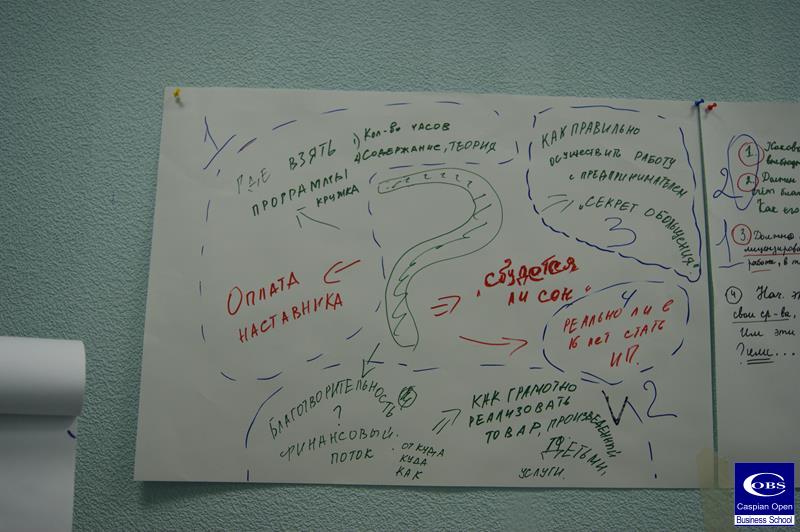 1
ГДЕ ВЗЯТЬ
ПРОГРАММЫ
КРУЖКА
1) КОЛ-ВО ЧАСОВ
2) СОДЕРЖАНИЕ, ТЕОРИЯ
КАК ПРАВИЛЬНО
ОСУЩЕСТВИТЬ РАБОТУ
С ПРЕДПРИНИМАТЕЛЕМ
"СЕКРЕТ ОБОЛЬЩЕНИЯ"
3
ОПЛАТА
НАСТАВНИКА
"СБУДЕТСЯ
ЛИ СОН"
4
РЕАЛЬНО ЛИ В
16 ЛЕТ СТАТЬ
ИП.
БЛАГОТВОРИТЕЛЬНОСТЬ
?
ФИНАНСОВЫЙ
ПОТОК
ОТКУДА
КУДА
КАК
КАК ГРАМОТНО
РЕАЛИЗОВАТЬ
ТОВАР, ПРОИЗВЕДЕННЫЙ
ДЕТЬМИ,
УСЛУГИ.
2
2
1
1
2
Должен
Как его
3 Должно
лицензирова
работа, в т
4 Нач. э
свои ср-ва,
Или эти
? или...
COBS
Caspian Open
Business School